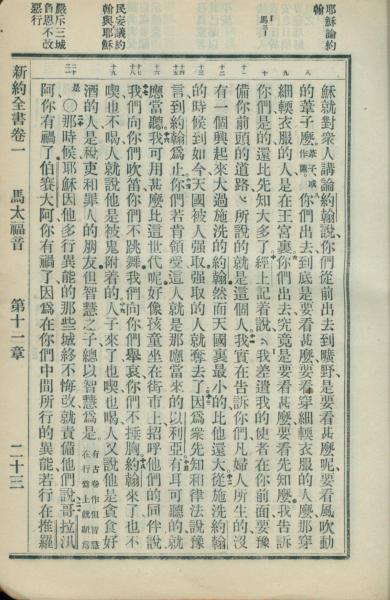 耶穌論約
翰
馬
民妄議約
翰與耶穌
嚴斥三城
負恩不改
惡行
八
九
十
十一
十二
十三
十四
十五
十六
十七
十八
十九
二十
二十一
穌就對衆人講論約翰說你們從前出去到曠野是要看甚麼呢要看風吹動
的葦子麼葦子或作蘆你們出去到底是要看甚麼要看穿細輭衣服的人麼那穿
細輭衣服的人是在王宮裏你們出去究竟是要看甚麼要看先知麼我告訴
你們是的還比先知大多了經上記着說我差遣我的使者在你前面要豫
備你前頭的道路所說的就是這個人我實在告訴你們凡婦人所生的沒
有一個興起來大過施洗的約翰然而天國裏最小的比他還大從施洗約翰
的時候到如今天國被人強取強取的人就奪去了因爲衆先知和律法說豫
言到約翰爲止你們若肯領受這人就是那應當來的以利亞有耳可聽的就
應當聽我可用甚麼比這世代呢好像孩童坐在街市上招呼他們的同伴說
我們向你們吹笛你們不跳舞我們向你們舉哀你們不捶胸約翰來了也不
喫也不喝人就說他是被鬼附着的人子來了也喫也喝人又說他是貪食好
酒的人是稅吏和罪人的朋友但智慧之子總以智慧爲是有古卷作但智慧在行爲上就顯爲
是○那時候耶穌因他多行異能的那些城終不悔改就責備他們說哥拉汛
阿你有禍了伯賽大阿你有禍了因爲在你們中間所行的異能若行在推羅
新約全書卷一 馬太福音 第十一章 二十三